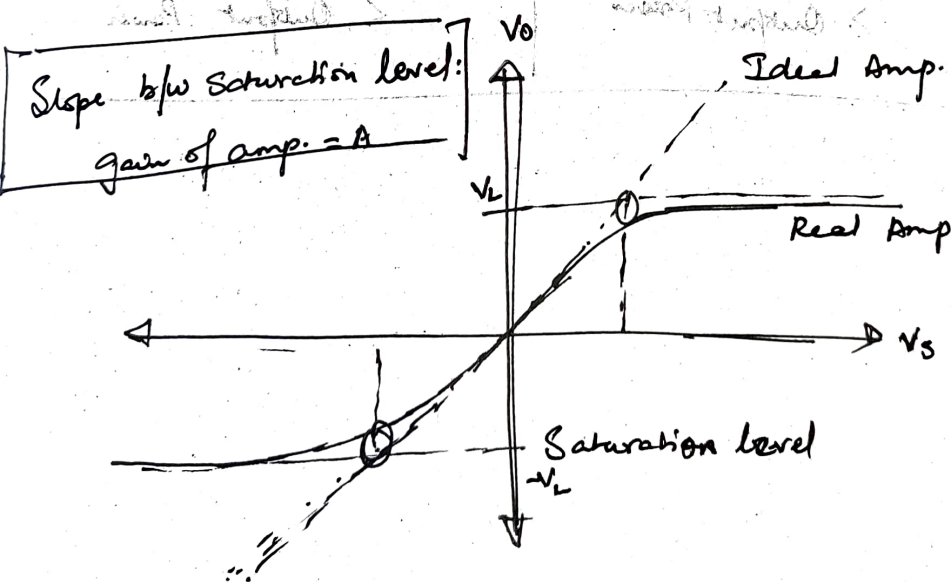 Slope b/w Saturation level:
gain of amp. = A
Vo
Ideal Amp.
VL
Real Amp
Vs
Saturation level
-VL